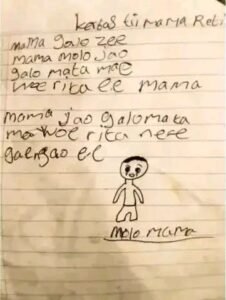 kabas tii mama Reti
mama galo zee
mama molo jao
galo mata mae
rita ee mama
mama jao galomata
rita nere
el
molo mama